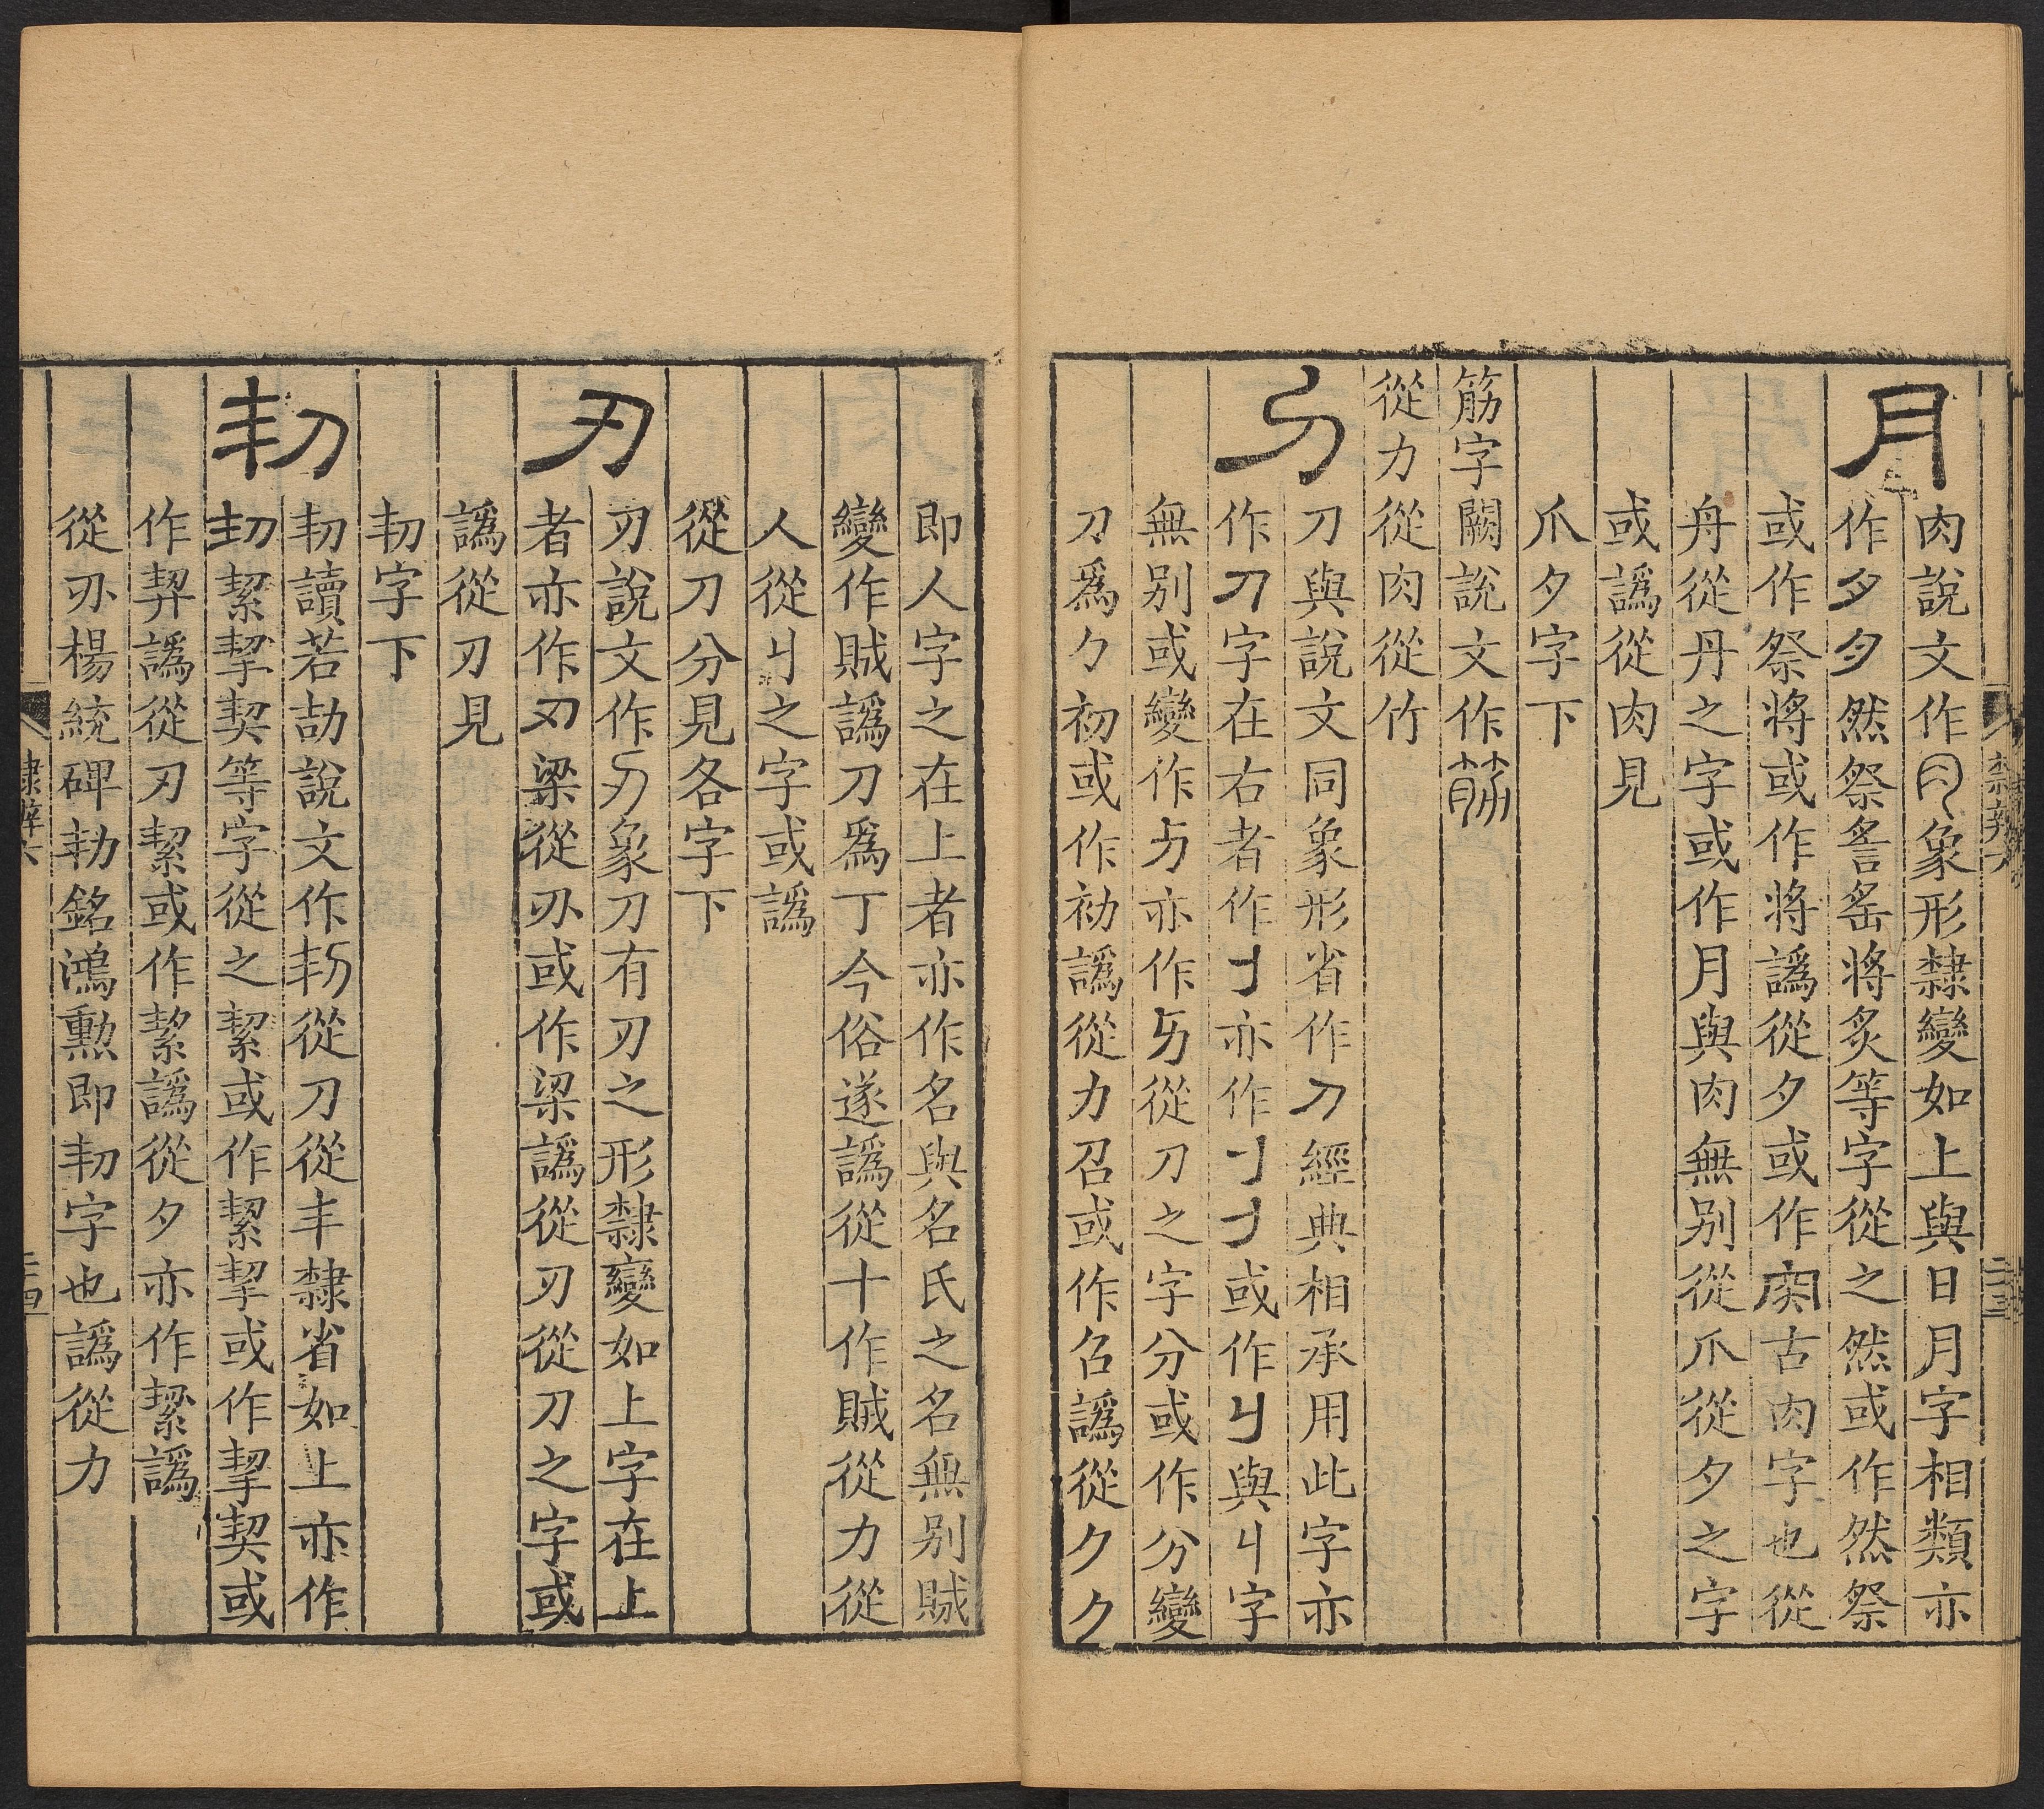 月
肉說文作象形隸變如上與日月字相類亦
作然祭䚻䍃將炙等字從之然或作然祭
或作祭將或作將譌從夕或作古肉字也從
舟從丹之字或作月與肉無别從爪從夕之字
或譌從肉見
爪夕字下
筋字闕說文作
從力從肉從竹
刀
刀與說文同象形省作刀經典相承用此字亦
作刀字在右者作亦作或作與刂字
無别或變作亦作從刀之字分或作分變
刀爲ク初或作初譌從力召或作譌從ククク
即人字之在上者亦作名與名氏之名無别賊
變作賊譌刀爲丁今俗遂譌從十作賊從力從
人從刂之字或譌
從刀分見各字下
刃
刃說文作象刀有刃之形隸變如上字在上
者亦作刃梁從刅或作梁譌從刃從刀之字或
譌從刃見
㓞字下
㓞
㓞讀若劼說文作從刀從丯隸省如上亦作
㓞絜挈契等字從之絜或作絜挈或作挈契或
作契譌從刃絜或作絜譌從夕亦作絜譌
從刅楊統碑勑銘鴻勳即㓞字也譌從力
隸辨六
二十四